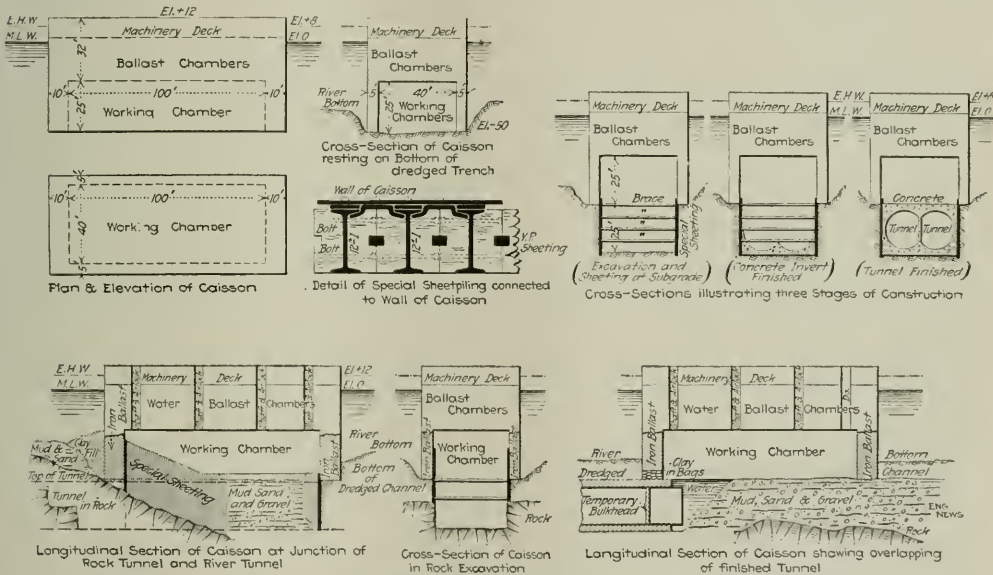 El.+12
E.H.W.
M.L.W.
El.+8
El.0
Machinery Deck
32'
Ballast Chambers
10'
100'
10'
25'
Working Chamber
5'
10'
100'
10'
40'
Working Chamber
5'
Plan & Elevation of Caisson
Machinery Deck
Ballast
Chambers
River
Bottom
5'
25'
40'
5'
Working
Chambers
El.-50
Cross-Section of Caisson
resting on Bottom of
dredged Trench
Wall of Caisson
Bolt
Bolt
12"I
12"I
Y.P.
Sheeting
Detail of Special Sheetpiling connected
to Wall of Caisson
Machinery Deck
Ballast
Chambers
25'
Brace
"
"
"
25'
Special Sheeting
(Excavation and
Sheeting at Subgrade)
E.H.W.
M.L.W.
Machinery Deck
Ballast
Chambers
(Concrete Invert
Finished)
El.0
Machinery Deck
Ballast
Chambers
Concrete
Tunnel
Tunnel
(Tunnel Finished)
Cross-Sections illustrating three Stages of Construction
E.H.W.
M.L.W.
El.+12
El.0
Machinery
Deck
Water
Ballast
Chambers
Iron Ballast
Iron Ballast
Working Chamber
Clay
Fill
Mud &
Sand
Top of Tunnel
Tunnel
in Rock
Special Sheeting
Mud Sand
and Gravel
River
Bottom
Bottom
of
Dredged Channel
Longitudinal Section of Caisson at Junction of
Rock Tunnel and River Tunnel
Machinery Deck
Ballast
Chambers
Iron Ballast
Iron Ballast
Working
Chamber
Rock
Cross-Section of Caisson
in Rock Excavation
E.H.W.
M.L.W.
Machinery
Deck
Water
Ballast
Chambers
Iron Ballast
Iron Ballast
Working Chamber
River
Dredged
Bottom
Channel
Clay
in Bags
Water
Temporary
Bulkhead
Mud, Sand & Gravel
ENG.
NEWS
Rock
Longitudinal Section of Caisson showing overlapping
of finished Tunnel